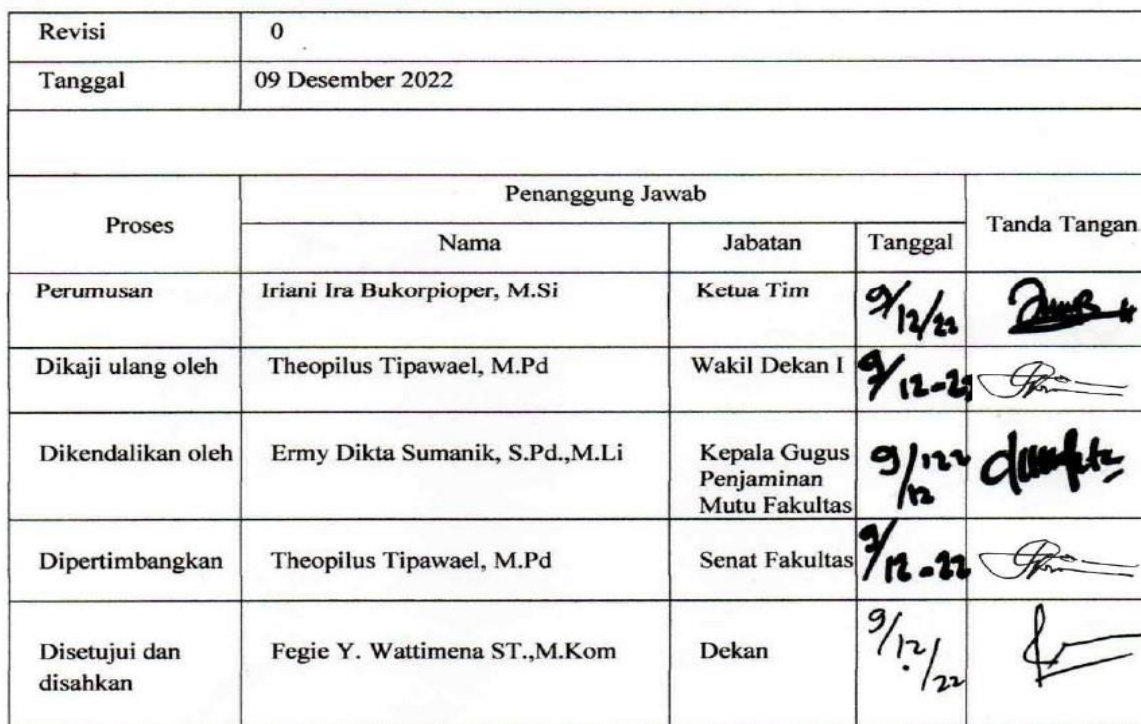 Revisi 0
Tanggal 09 Desember 2022
Proses Penanggung Jawab Tanda Tangan
Nama Jabatan Tanggal
Perumusan Iriani Ira Bukorpioper, M.Si Ketua Tim 9/12/22
Dikaji ulang oleh Theopilus Tipawael, M.Pd Wakil Dekan I 9/12-22
Dikendalikan oleh Ermy Dikta Sumanik, S.Pd.,M.Li Kepala Gugus
Penjaminan
Mutu Fakultas
Dipertimbangkan Theopilus Tipawael, M.Pd Senat Fakultas 9/12-22
Disetujui dan Fegie Y. Wattimena ST.,M.Kom Dekan 9/12/22
disahkan